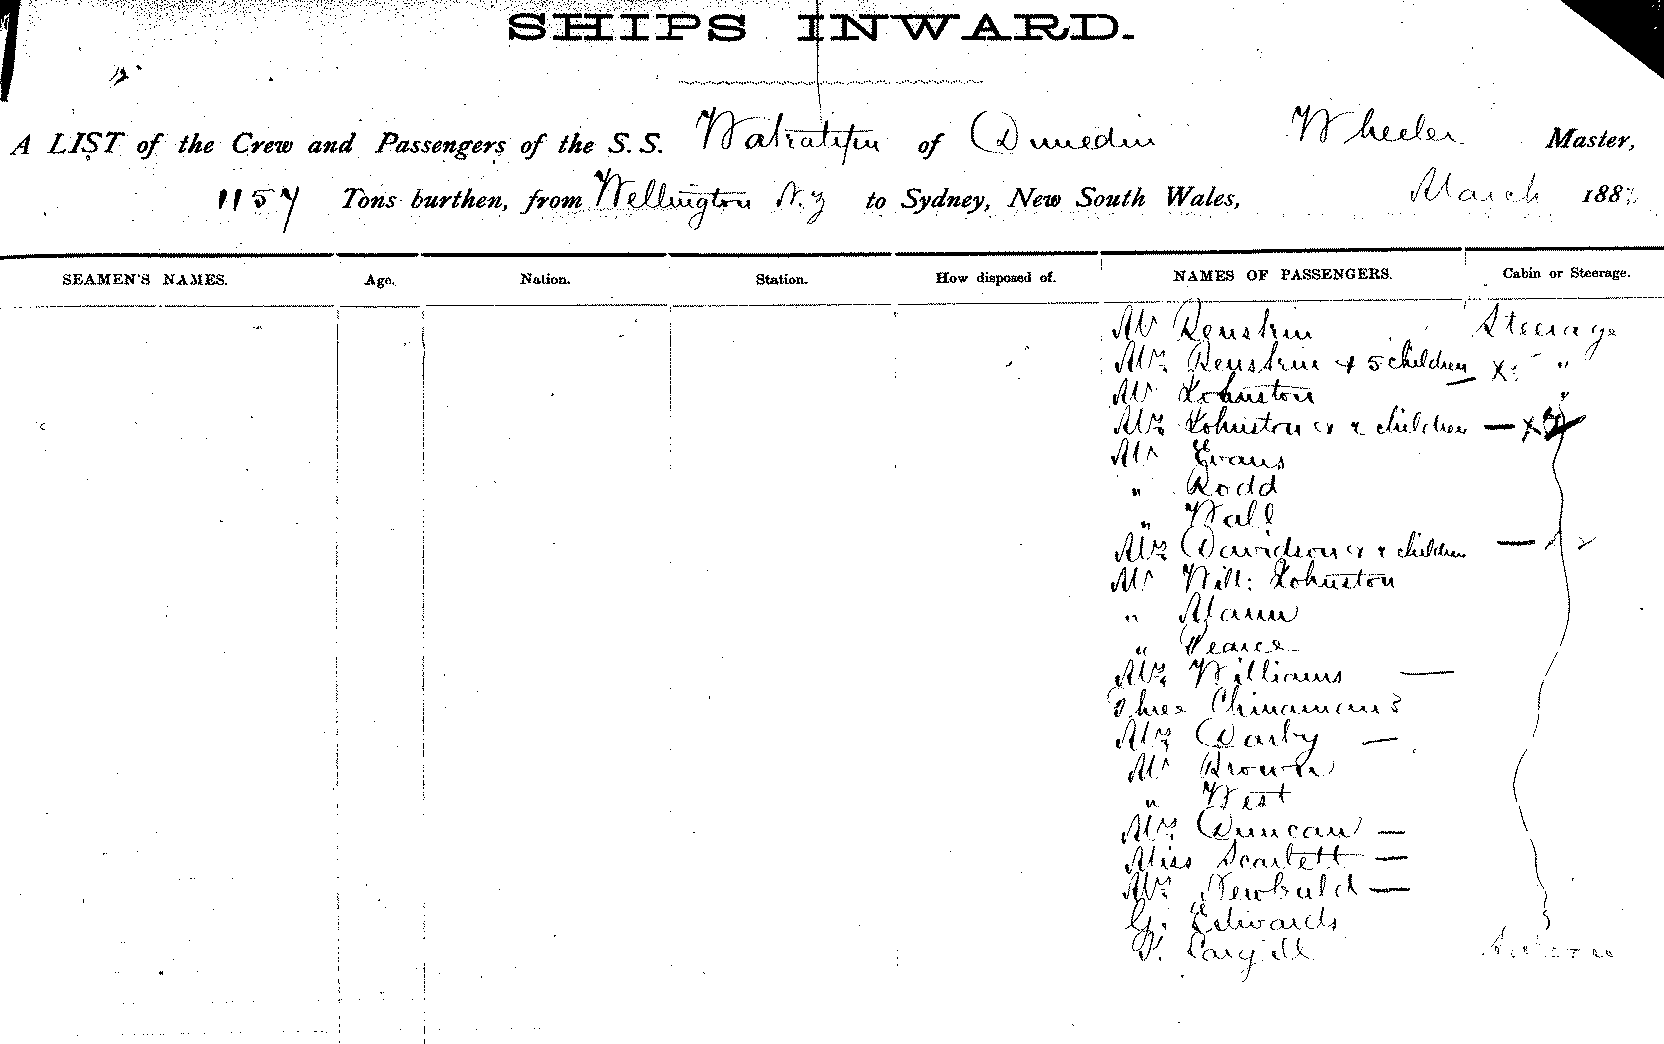 SHIPS INWARD.
A LIST of the Crew and Passengers of the S.S. Wakatipu of Dunedin Wheeler Master,
1157 Tons burthen, from Wellington N.Z to Sydney, New South Wales, March 188
SEAMEN'S NAMES. Age. Nation. Station. How disposed of. NAMES OF PASSENGERS. Cabin or Steerage.
Mr Renskin Steerage
Mrs Renskin & 5 children x "
Mr Johnston "
Mrs Johnston & 2 children — x
Mr Evans
" Rodd
" Wall
Mrs Davidson & 2 children — 2
Mr Will: Johnston
" Mann
" Pearce
Mrs Williams —
Three Chinamans
Mrs Darby —
Mr Brown
" West
Mrs Duncan —
Miss Scarlett —
Mrs Newbuld —
G. Edwards
Cargill Saloon